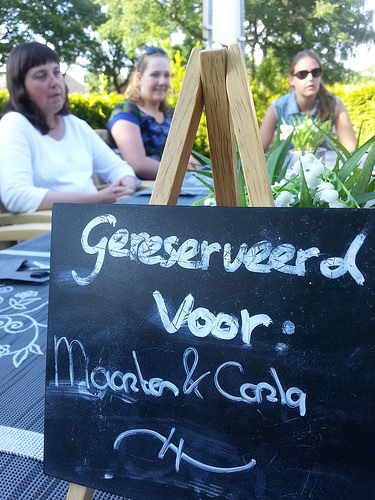 Gereserveerd
voor:
Maarten & Carla